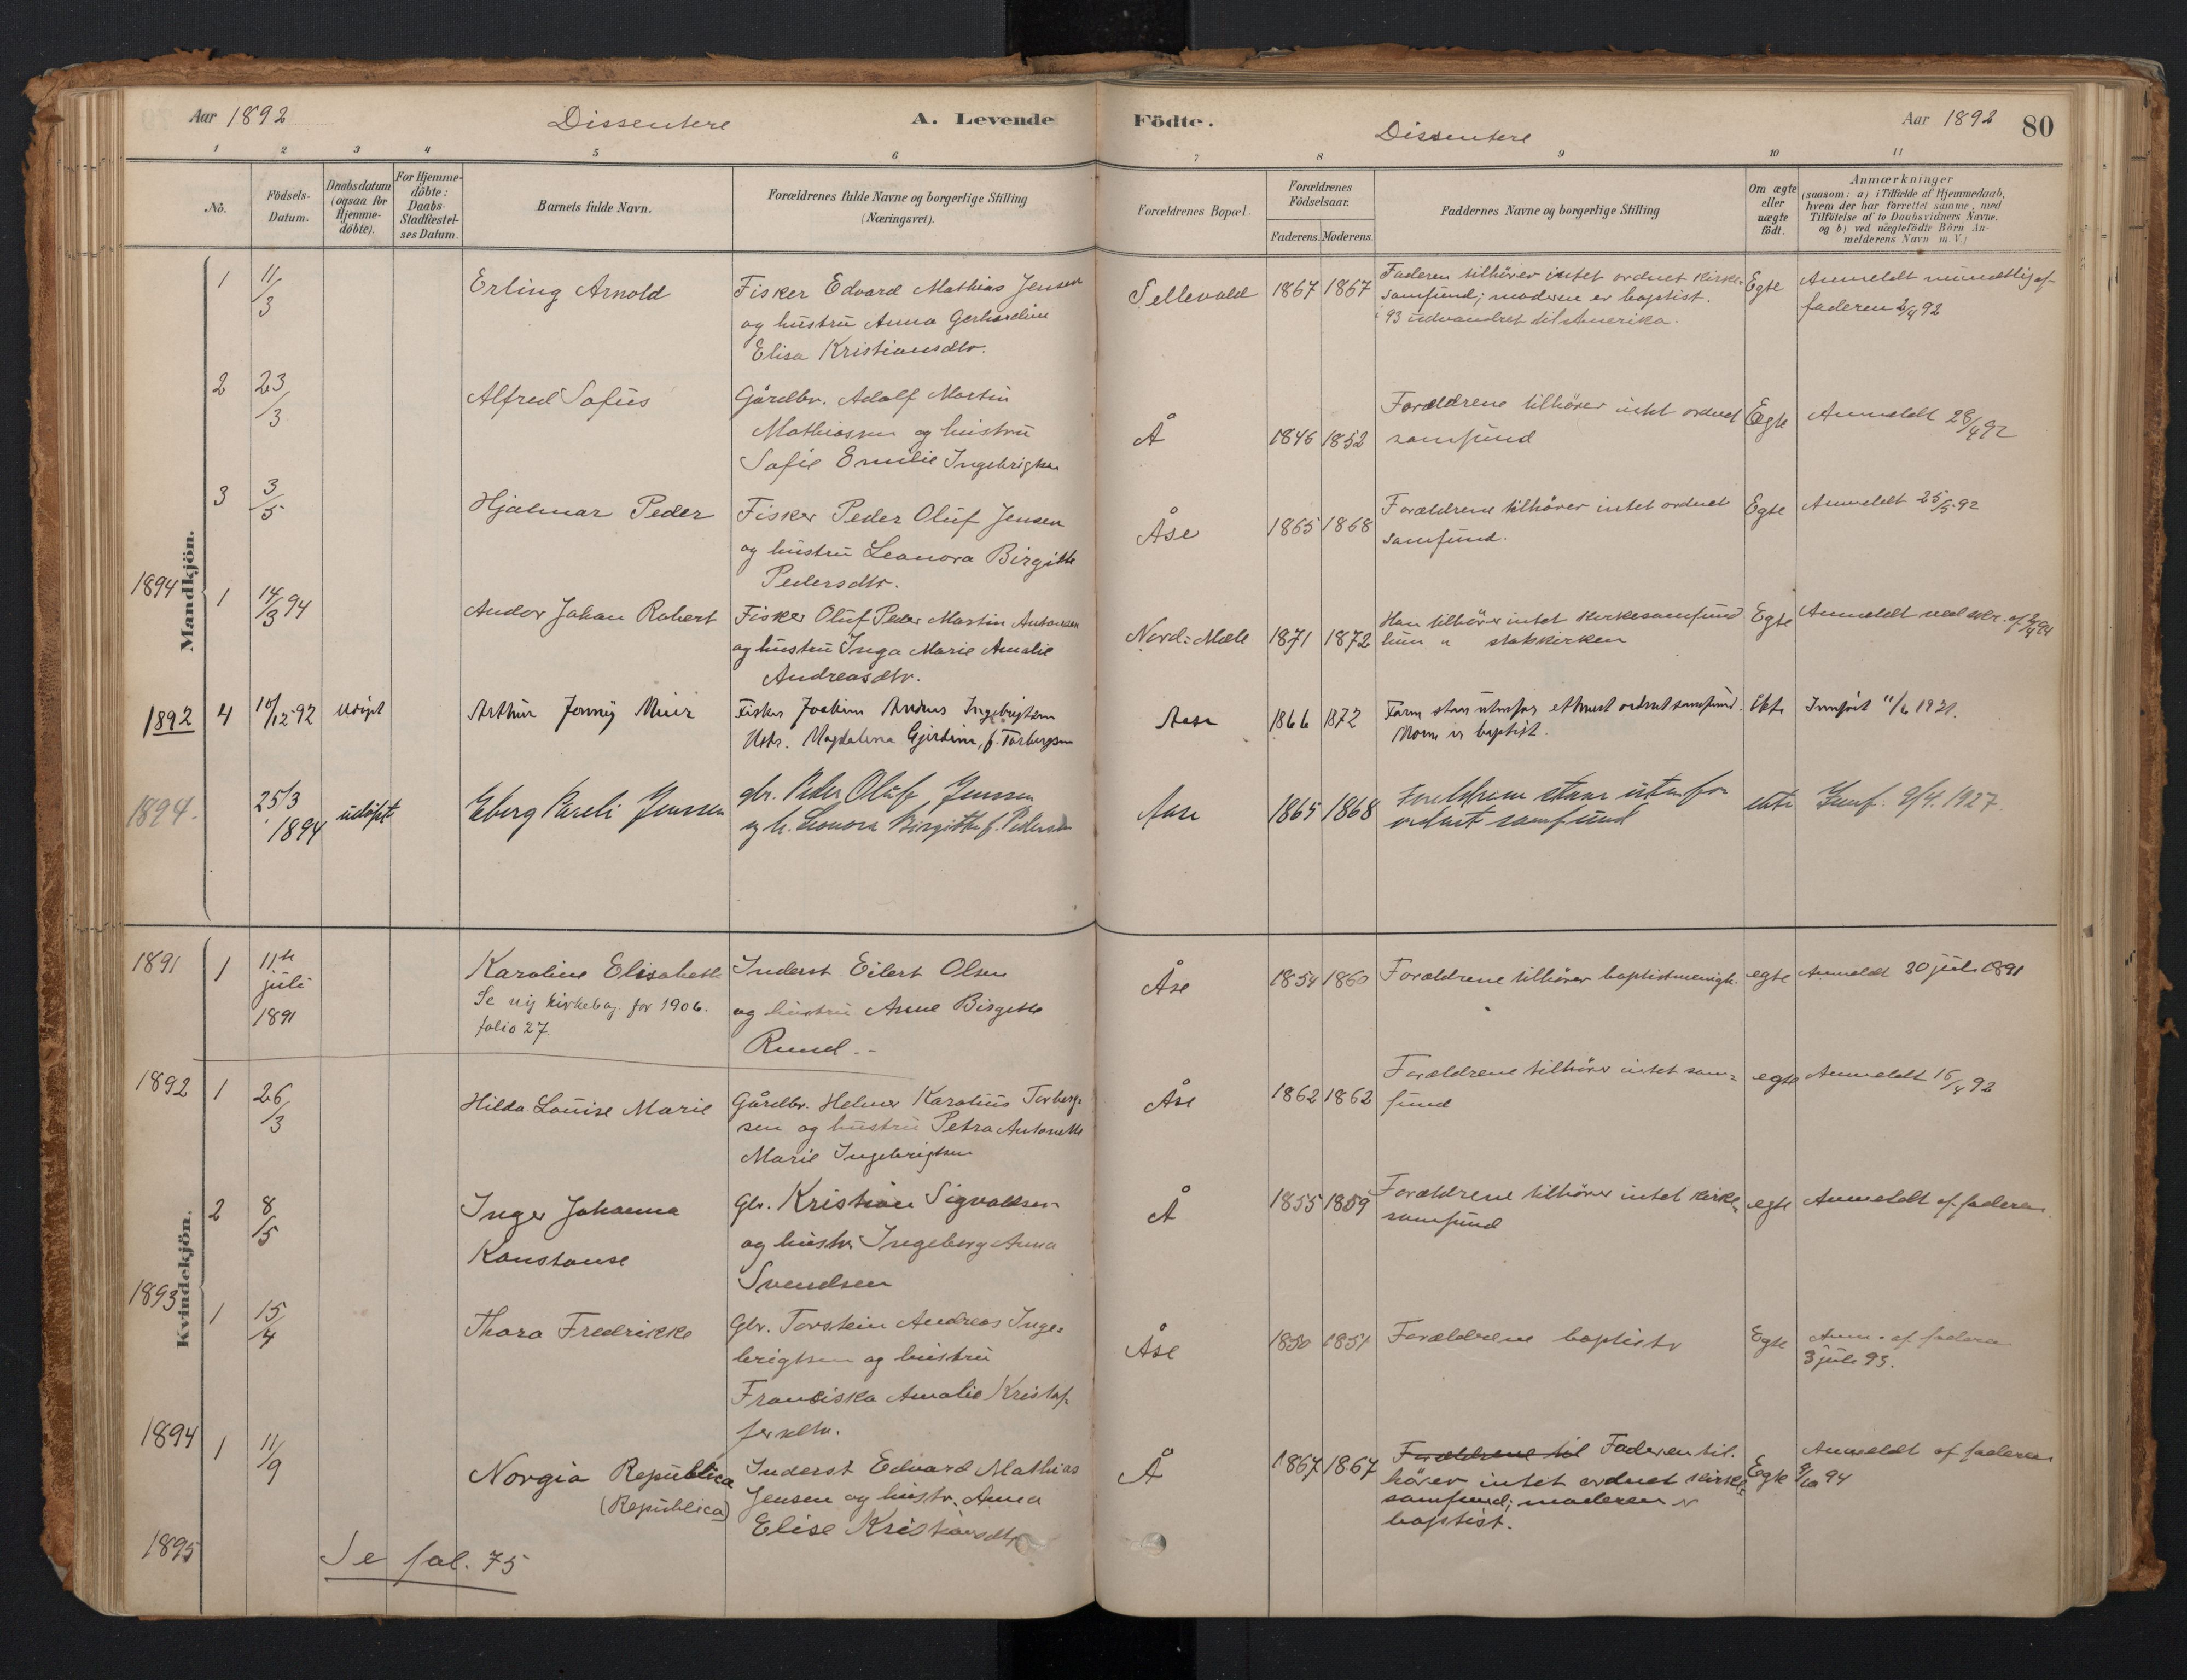 Aar 1892 Dissentere A. Levende Födte. Dissentere Aar 1892 80
1 2 3 4 5 6 7 8 9 10 11
No. Födsels-Datum. Daabsdatum (ogsaa for Hjemme-döbte). For Hjemme-döbte: Daabs-Stadfæstel-ses Datum. Barnets fulde Navn. Forældrenes fulde Navne og borgerlige Stilling (Næringsvei). Forældrenes Bopæl. Forældrenes Födselsaar. Faderens. Moderens. Faddernes Navne og borgerlige Stilling Om ægte eller uægte födt. Anmærkninger (saasom: a) i Tilfælde af Hjemmedaab, hvem der har forrettet samme, med Tilföielse af to Daabsvidners Navne. og b) ved uægtefödte Börn An-melderens Navn m.V.)
Mandkjön.
1 11/3 Erling Arnold Fisker Edvard Mathias Jensen Sellevold 1867 1867 Faderen tilhører intet ordnet kirke- Egte Anmeldt mundtlig af
og hustru Anna Gerhardine samfund; moderen er baptist. faderen 2/4 92
Elisa Kristiansdtr. i 93 udvandret til Amerika.
2 23/3 Alfred Sofus Gårdbr. Adolf Martin Forældrene tilhører intet ordnet Ægte Anmeldt 28/4 92
Mathiassen og hustru Å 1846 1852 samfund
Sofie Emilie Ingebrigtsen
3 3/5 Hjalmar Peder Fisker Peder Oluf Jensen Åse 1865 1868 Forældrene tilhører intet ordnet Egte Anmeldt 25/5 92
og hustru Leonora Birgitte samfund.
Pedersdtr.
1894 1 14/3 94 Andor Johan Robert Fisker Oluf Peder Martin Antonsen Nord-Mæle 1871 1872 Han tilhører intet kirkesamfund Egte Anmeldt ved skr. af 2/4 94
og hustru Inga Marie Amalie hun " statskirken
Andreasdtr.
1892 4 10/12 92 udöpt Arthur Jonny Fisker Joakim Andreas Ingebrigtsen Aase 1866 1872 Faren staar utenfor ethvert ordnet samfund. Ekte Innført 11/6 1921.
Hstr. Magdalena Gjertine, f. Torbergsen Moren er baptist.
1894. 25/3 1894 udöpt Eberg Pareli Jenssen gbr. Peder Oluf Jenssen Aase 1865 1868 Foreldrene staar utenfor ekte Innf. 9/4. 1927.
og h. Leonora Birgitte f. Pedersen ordnet samfund
Kvindekjön.
1891 1 11te juli 1891 Karoline Elisabeth Inderst Eilert Olsen Åse 1854 1860 Forældrene tilhører baptistmenigh. egte Anmeldt 30 juli 1891
Se ny kirkebog for 1906. og hustru Anne Birgitte
folio 27. Rund.-
1892 1 26/3 Hilda Louise Marie Gårdbr. Helmer Karolius Torberg- Åse 1862 1862 Forældrene tilhører intet sam- egte Anmeldt 16/4 92
sen og hustru Petra Antonette fund
Marie Ingebrigtsen
2 8/5 Inger Johanna Gbr. Kristian Sigvaldsen Å 1855 1859 Forældrene tilhører intet kirke- egte Anmeldt af faderen
Konstanse og hustr. Ingeborg Anna samfund
Svendsen
1893 1 15/4 Thora Fredrikke Gbr. Torstein Andreas Inge- Åse 1850 1851 Forældrene baptister Egte Anm. af faderen
brigtsen og hustru 3 juli 93.
Franciska Amalie Kristof-
fersdtr.
1894 1 11/9 Norgia Republica Inderst Edvard Mathias Å 1867 1867 Forældrene til Faderen til- Egte Anmeldt af faderen
(Republica) Jensen og hustr. Anna hører intet ordnet kirke- 9/10 94
Elise Kristiansdtr samfund; moderen er
baptist.
1895 Se fol. 75